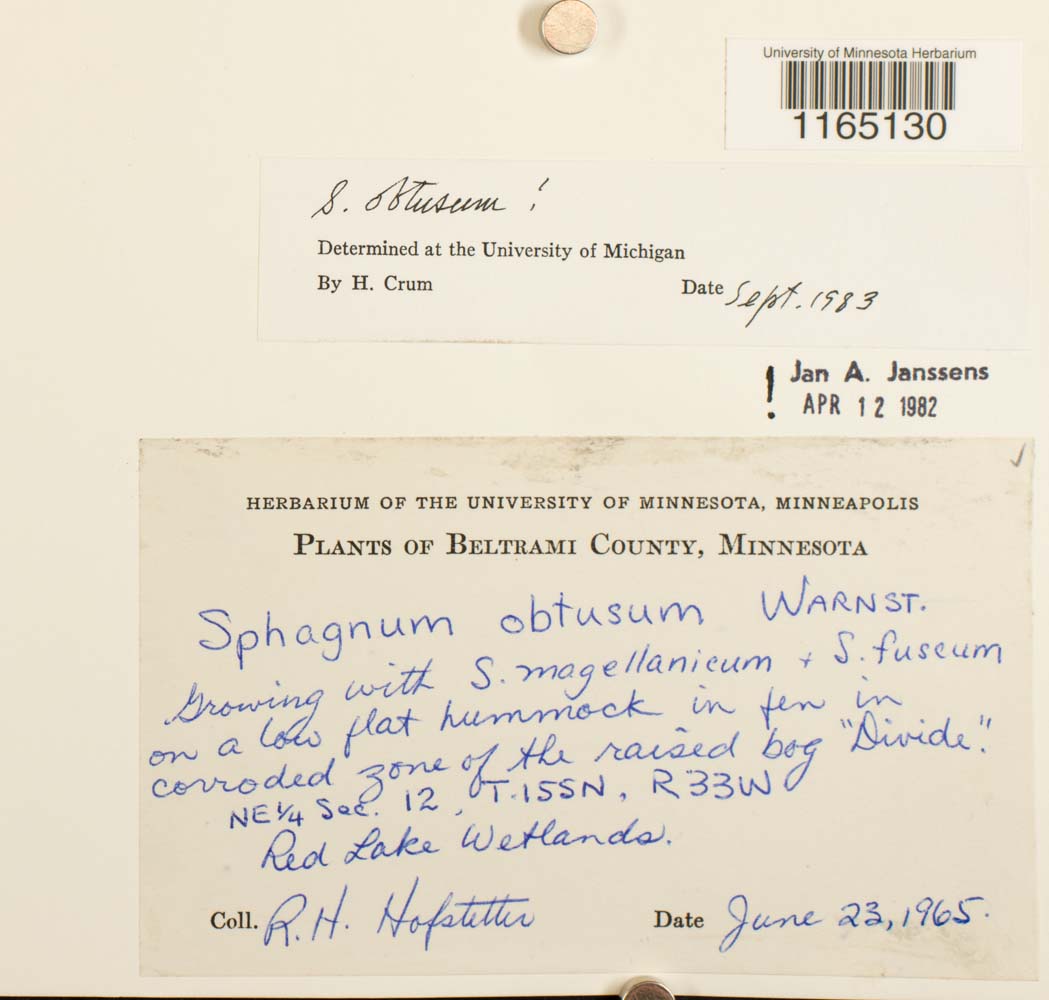 University of Minnesota Herbarium
1165130
S. obtusum !
Determined at the University of Michigan
By H. Crum Date Sept. 1983
! Jan A. Janssens
APR 12 1982
HERBARIUM OF THE UNIVERSITY OF MINNESOTA, MINNEAPOLIS
PLANTS OF BELTRAMI COUNTY, MINNESOTA
Sphagnum obtusum WARNST.
Growing with S. magellanicum + S. fuscum
on a low flat hummock in fen in
corroded zone of the raised bog "Divide."
NE 1/4 Sec. 12, T.155N, R33W
Red Lake Wetlands.
Coll. R.H. Hofstetter Date June 23, 1965.